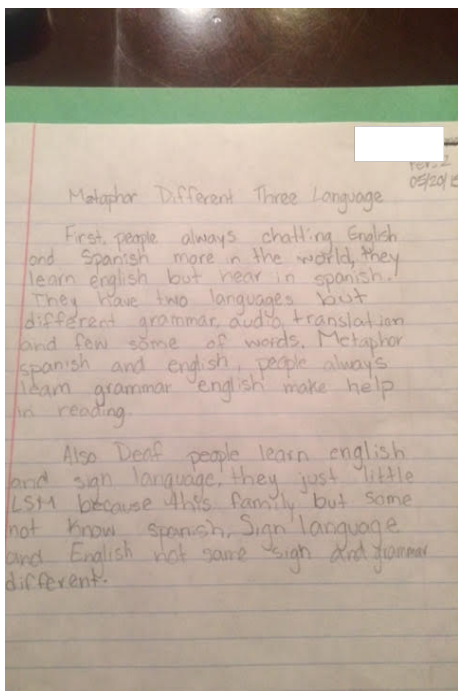 Per. 2
05/20/15
Metaphor Different Three Language
First, people always chatting English
and Spanish more in the world, they
learn english but hear in spanish.
They have two languages but
different grammar, audio, translation
and few some of words. Metaphor
spanish and english, people always
learn grammar english make help
in reading.
Also Deaf people learn english
and sign language, they just little
LSM because this family but some
not know spanish, Sign language
and English not same sign and grammar
different.